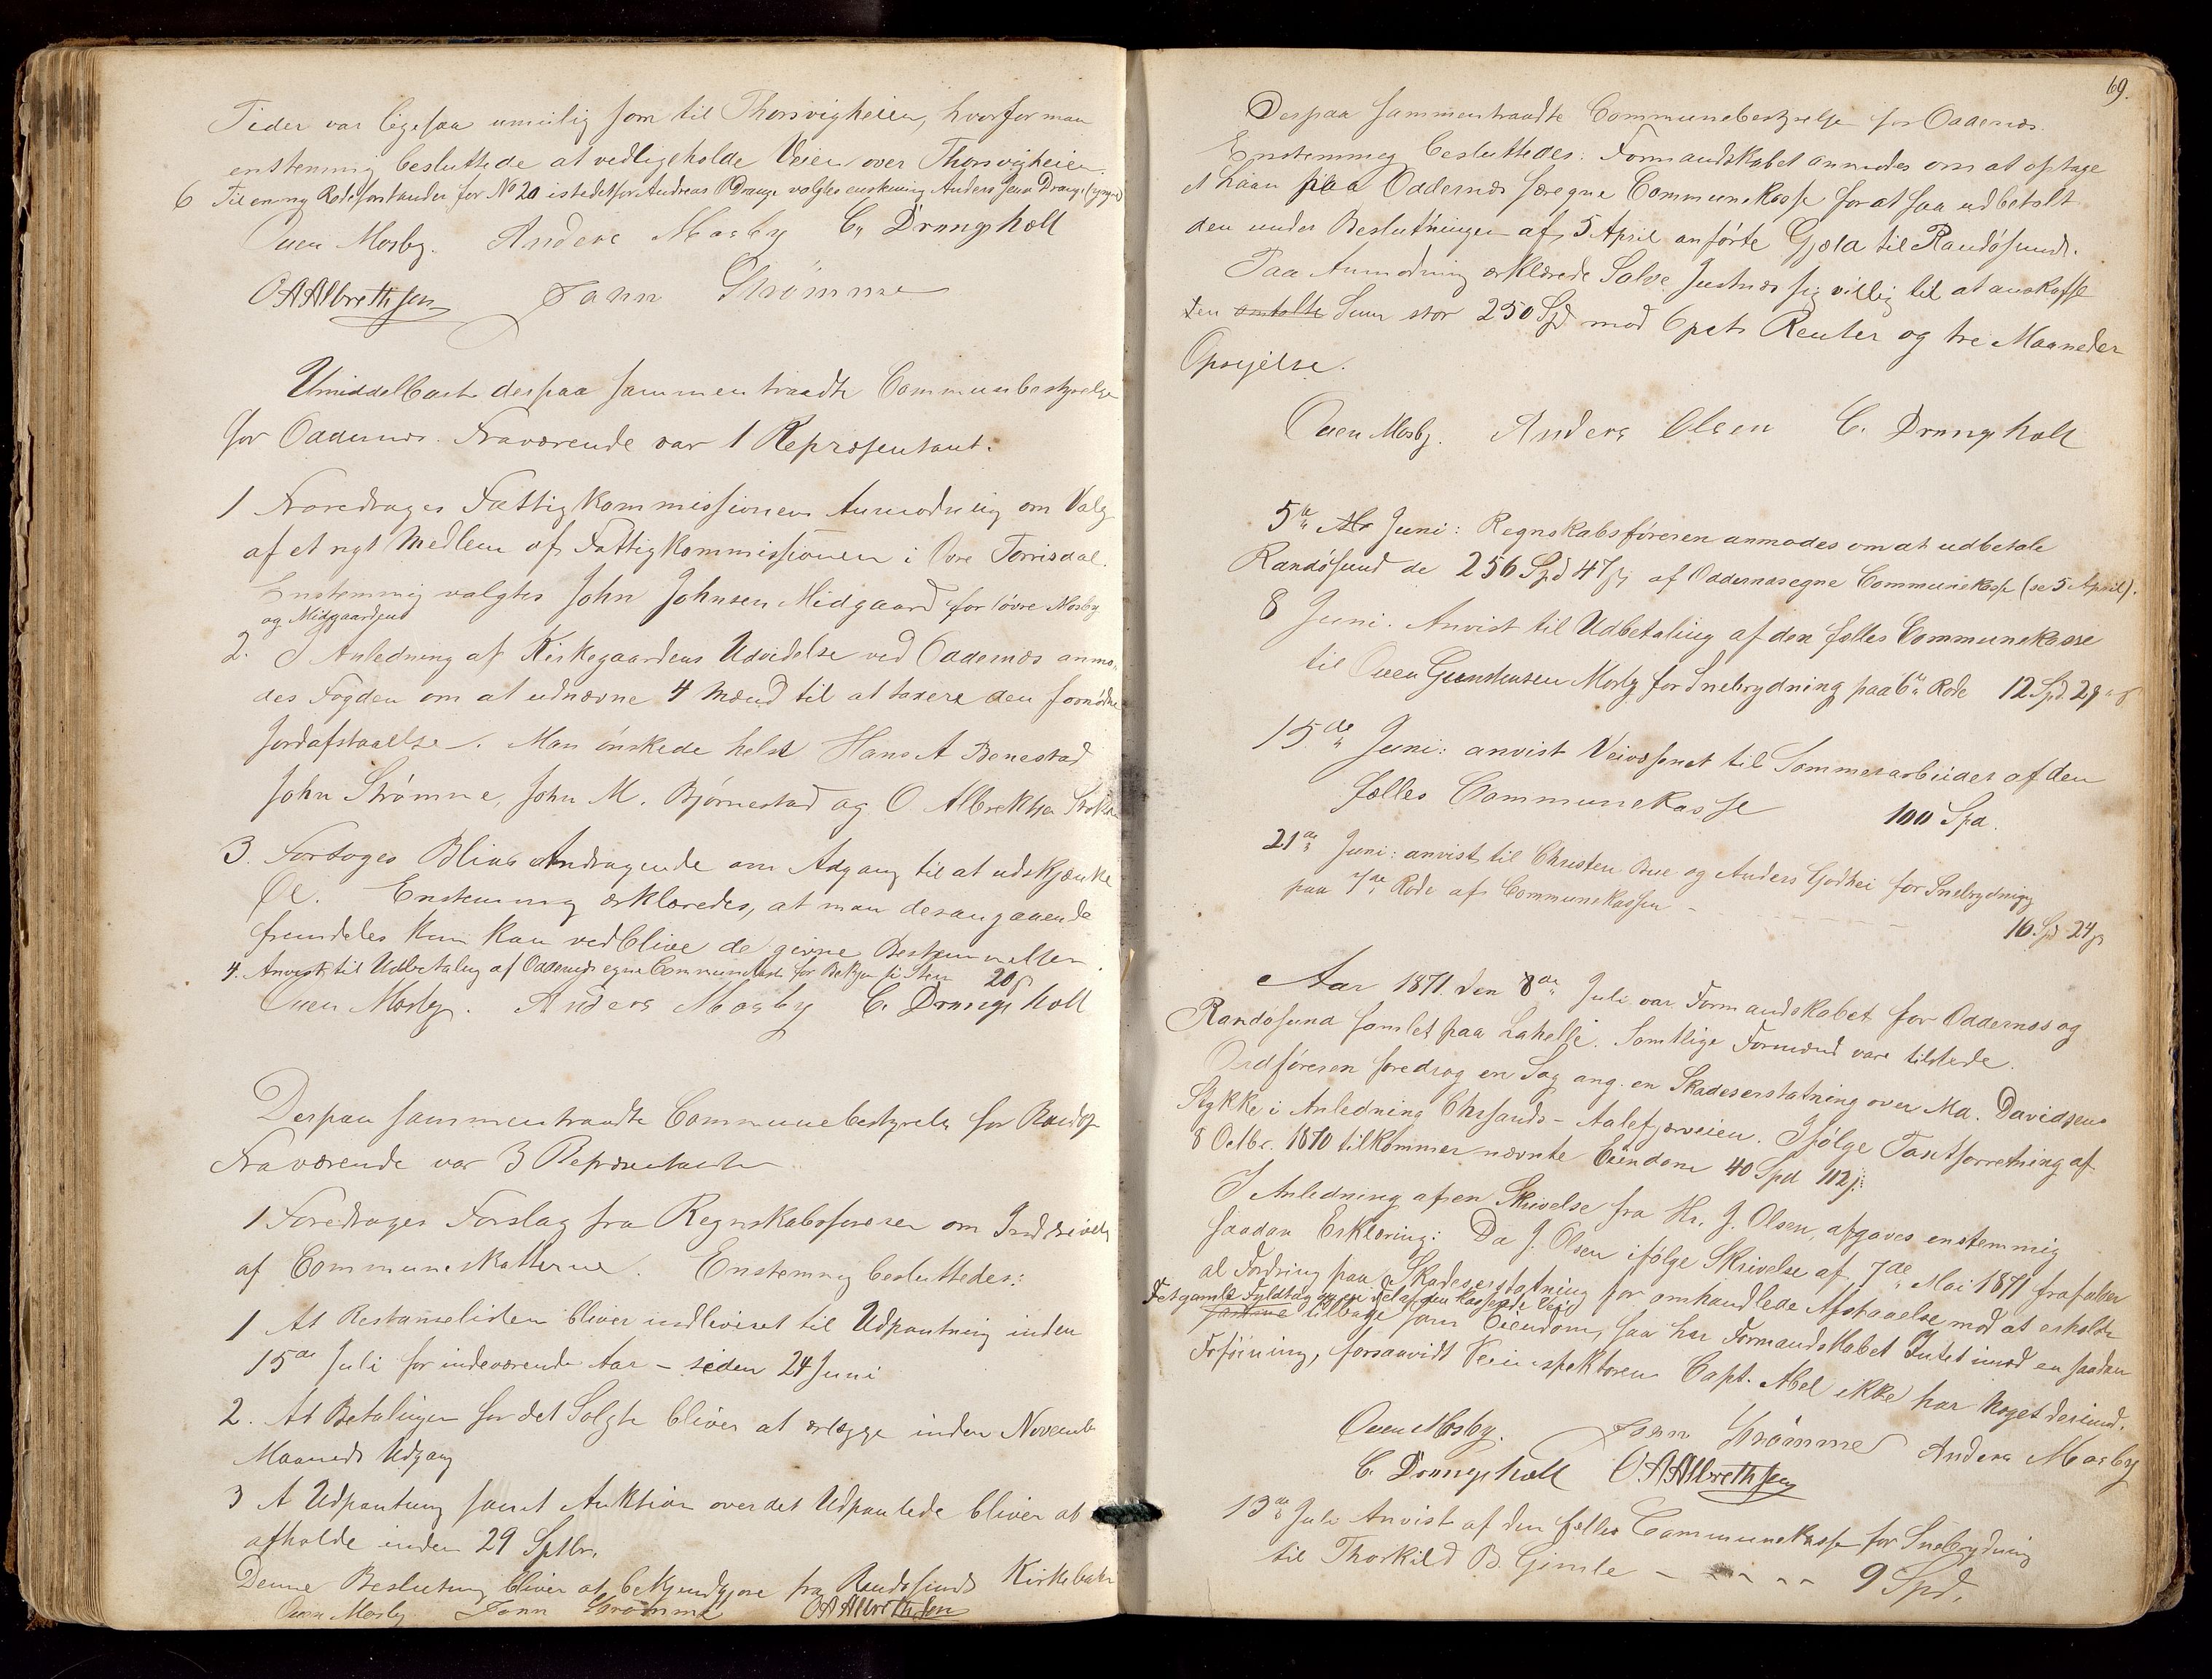 Tider var ligesaa umulig som til Thorsvigheien, hvorfor man
enstemmig besluttede at vedligeholde Veien over Thorsvigheien.
6 Til en ny Rodeforstander for No 20 istedetfor Andreas O Drange valgtes enstemmig Anders Jens Drange (yngre)
Ouen Mosby. Anders Mosby C. Drangsholt
OAAlbrethsen John Strømme
Umiddelbart derpaa sammentraadte Communbestyrelse
for Oddernes. Fraværende var 1 Repræsentant.
1 Foredroges Fattigkommissionens Anmodning om Valg
af et nyt Medlem af Fattigkommissionen i Øvre Torrisdal.
Enstemmig valgtes John Johnsen Midgaard for løvre Mosby
og Midgaardens
2. I Anledning af Kirkegaardens Udvidelse ved Oddernes anmo-
des Fogden om at udnævne 4 Mænd til at taxere den fornødne
Jordafstaaelse. Man ønskede helst Hans A Benestad
John Strømme, John M. Bjørnestad og O Albrektsen
3. Fortoges Blias Andragende om Adgang til at udskjænke
Øl. Enstemmig erklæredes, at man desangaaende
fremdeles kun kan vedblive de givne Bestemmelser.
4. Anvist til Udbetaling af Oddernes egne Communekasse for 20
Ouen Mosby. Anders Mosby C. Drangsholt
Derpaa sammentraadte Communebestyrelse for Randøs
Fraværende var 3 Repræsentanter
1 Foredroges Forslag fra Regnskabsføreren om Inddrivelse
af Communeskatterne. Enstemmig besluttedes:
1 At Restanselisten bliver indleveret til Udpantning inden
15de Juli for indeværende Aar – siden 24 Juni
2. At Betalingen for det Solgte bliver at erlægge inden November
Maaneds Udgang
3 At Udpantning samt Auktion over det Udpantede bliver at
afholde inden 29 Sptbr.
Denne Beslutning bliver at bekjendtgjøre fra Randøsunds Kirkebakke
Ouen Mosby John Strømme OAAlbrethsen
69.
Derpaa sammentraadte Communebestyrelse for Oddernes
Enstemmig besluttedes: Formandskabet anmodes om at optage
et Laan paa Oddernes særegne Communekasse for at faa udbetalt
den under Beslutningen af 5 April anførte Gjæld til Randøsund.
Paa Anmodning erklærede Salve Justnæs sig villig til at anskaffe
den omtalte Sum stor 250 Spd mod 6 pct Renter og tre Maaneder
Opsigelse.
Ouen Mosby. Anders Olsen C. Drangsholt
5te Juni: Regnskabsføreren anmodes om at udbetale
Randøsund de 256 Spd 4 af Oddernes egne Communekasse (se 5 April).
8 Juni. Anvist til Udbetaling af den fælles Communekasse
til Ouen Gunstensen Mosby for Snebrydning paa 6te Rode 12 Spd 28
15de Juni: anvist Veivæsenet til Sommerarbeider af den
fælles Communekasse 100 Spd.
21de Juni: anvist til Christen Bue og Anders Godhei for Snebrydning
paa 7de Rode af Communekassen – 16 Spd 24
Aar 1871 den 8de Juli var Formandskabet for Oddernes og
Randøsund samlet paa Lahelle. Samtlige Formænd vare tilstede.
Ordføreren foredrog en Sag ang. en Skadeserstatning over Ma. Davidsens
Stykke i Anledning Chrsands – Aalefjærveien. Ifølge Taxtforretning af
8 Octbr. 1870 tilkommer nævnte Eiendom 40 Spd 112
I Anledning af en Skrivelse fra Hr. J. Olsen, afgaves enstemmig
saadan Erklæring: Da J. Olsen ifølge Skrivelse af 7de Mai 1871 frafalder
al Fordring paa Skadeserstatning for omhandlede Afstaaelse mod at erholde
Det gamle Fyldtag og en Del af den kasserede Vei
tilbage som Eiendom, saa har Formandskabet Intet imod en saadan
Føføining, forsaavidt Veiinspektøren Capt. Abel ikke har Noget derimod.
Ouen Mosby. John Strømme Anders Mosby
C. Drangsholt OAAlbrethsen
13de Juli Anvist af den fælles Communekasse for Snebrydning
til Thorkild B. Gimle – – – – – 9 Spd.